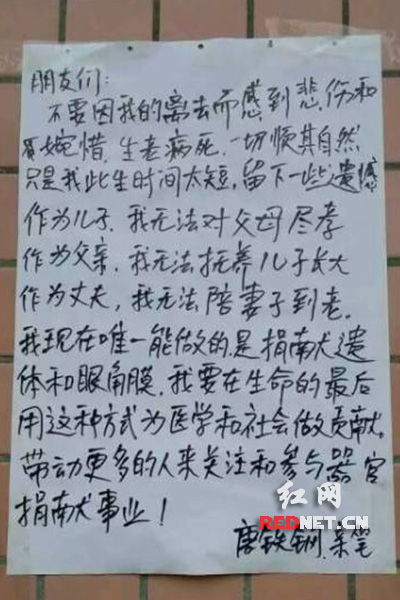 朋友们:
不要因我的离去而感到悲伤和
婉惜.生老病死.一切顺其自然
只是我此生时间太短,留下一些遗憾
作为儿子.我无法对父母尽孝
作为父亲.我无法抚养儿子长大
作为丈夫,我无法陪妻子到老.
我现在唯一能做的是捐献遗
体和眼角膜.我要在生命的最后
用这种方式为医学和社会做贡献.
带动更多的人来关注和参与器官
捐献事业!
红网
REDNET.CN
唐铁 亲笔